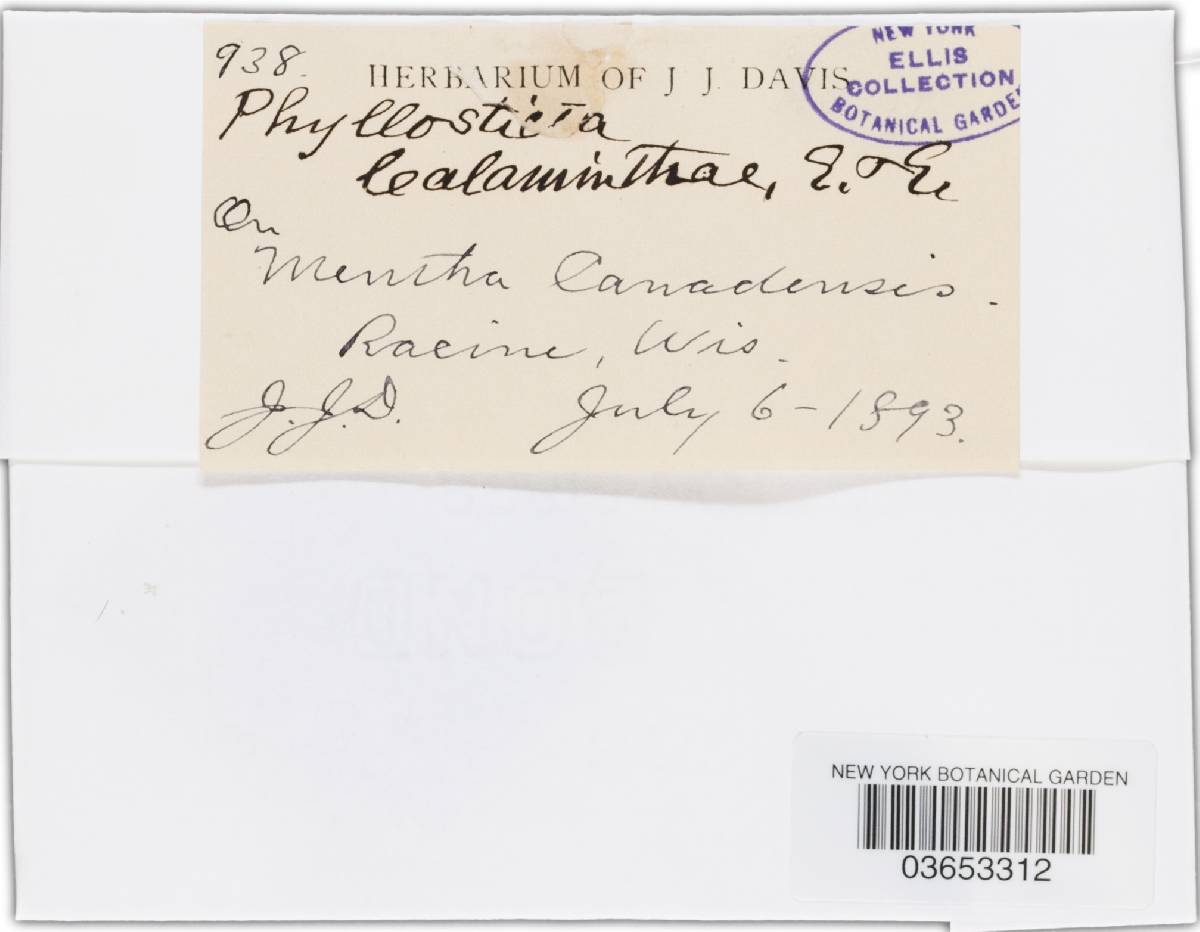 938.
HERBARIUM OF J. J. DAVIS
NEW YORK
ELLIS
COLLECTION
BOTANICAL GARDEN
Phyllosticta
Calaminthae, E. & E.
On
Mentha Canadensis.
Racine, Wis.
J.J.D. July 6-1893.
NEW YORK BOTANICAL GARDEN
03653312